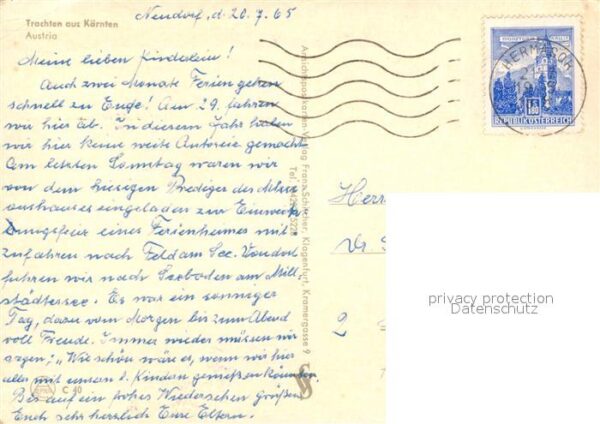 Trachten aus Kärnten
Austria
Neudorf, d. 20.7.65
Meine lieben Kinderlein!
Auch zwei Monate Ferien gehen
schnell zu Ende! Am 29. fahren
wir hier ab. In diesem Jahr haben
wir hier keine weite Autoreise gemacht
Am letzten Sonntag waren wir
von dem hiesigen Prediger des
aushauses eingeladen zur Einweih
ungsfeier eines Ferienheimes mit
zufahren nach Feld am See. Von dort
fuhren wir nach Seeboden am Mill-
städtersee. Es war ein sonniger
Tag, dazu vom Morgen bis zum Abend
voll Freude. Immer wieder müssen wir
sagen: "Wie schön wäre es, wenn wir hier
alles mit unsern l. Kindern genießen könnten.
Bis auf ein frohes Wiedersehen grüßen
Euch sehr herzlich Eure Eltern.
C 40
Ansichtspostkarten-Verlag Franz Schilcher, Klagenfurt, Kramergasse 9
Tel.
HERMAGOR
1.80
REPUBLIK ÖSTERREICH
Herr
2
privacy protection
Datenschutz